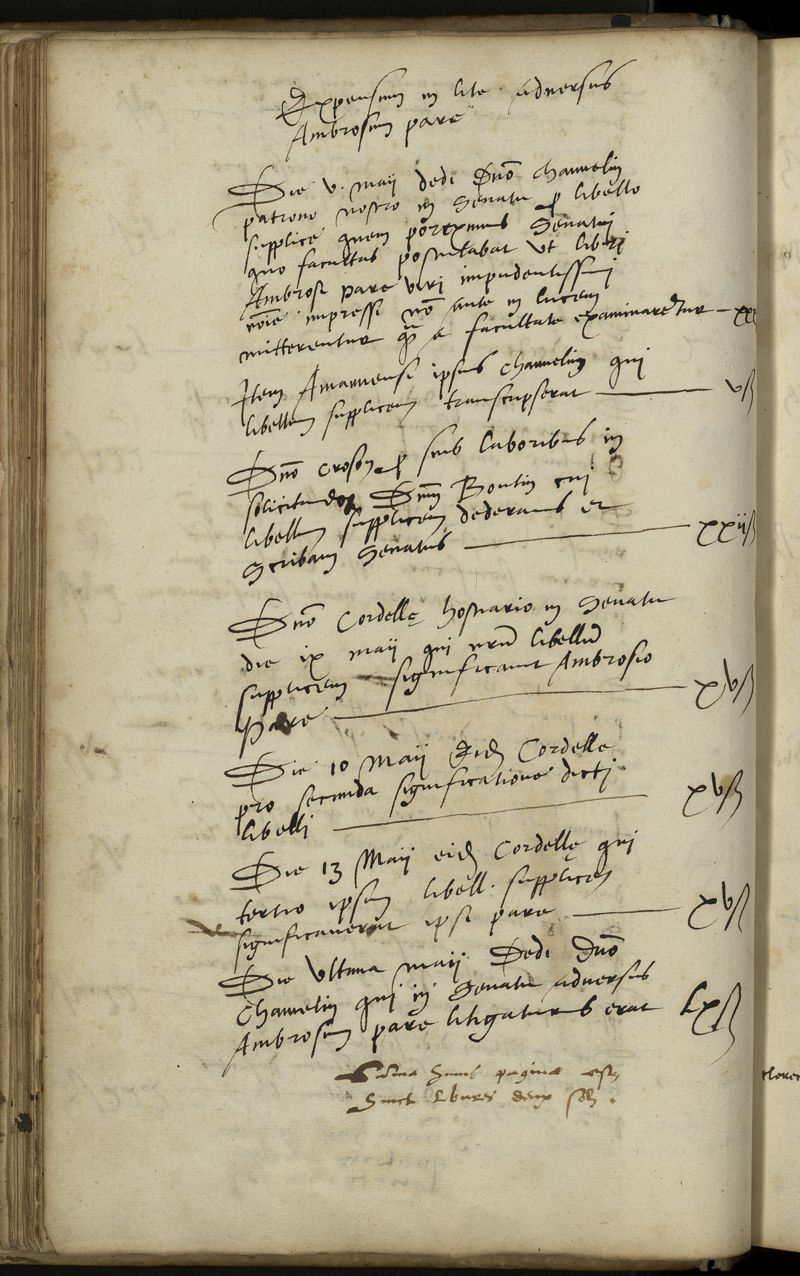 Expensum in lite adversus
Ambrosium pare
Die v. maij dedi Dno Chauvelin
patrono nostro in Senatu p libello
supplice quem porreximus Senatui
quo facultas postulabat ut libri
Ambrosi Pare viri impudentissimi
noie impressi no ante in lucem
mitterentur q a facultate examinaretur — xxx
Item Amanuensi ipsius Chauvelin qui
libellum supplicem transcripserat — vß
Dno Croson p suis laboribus in
solicitando Dnm Boutin cui
libellum supplicem dederamus et
Scribam Senatus — xxiiß
Dno Cordelle hostiario in Senatu
die ix maij qui nrm libellum
supplicem significavit Ambrosio
Pare — xvß
Die 10 Maij Eidem Cordelle
pro secunda significatione dicti
libelli — xvß
Die 13 Maij eidem Cordelle qui
tertio ipsum libell. supplicem
significaverat ipsi pare — xvß
Die Ultima maij Dedi Dno
Chauvelin qui in Senatu adversus
Ambrosium pare litigaturus erat Lxß
Summa huius paginae est
huict libvres deux solz.